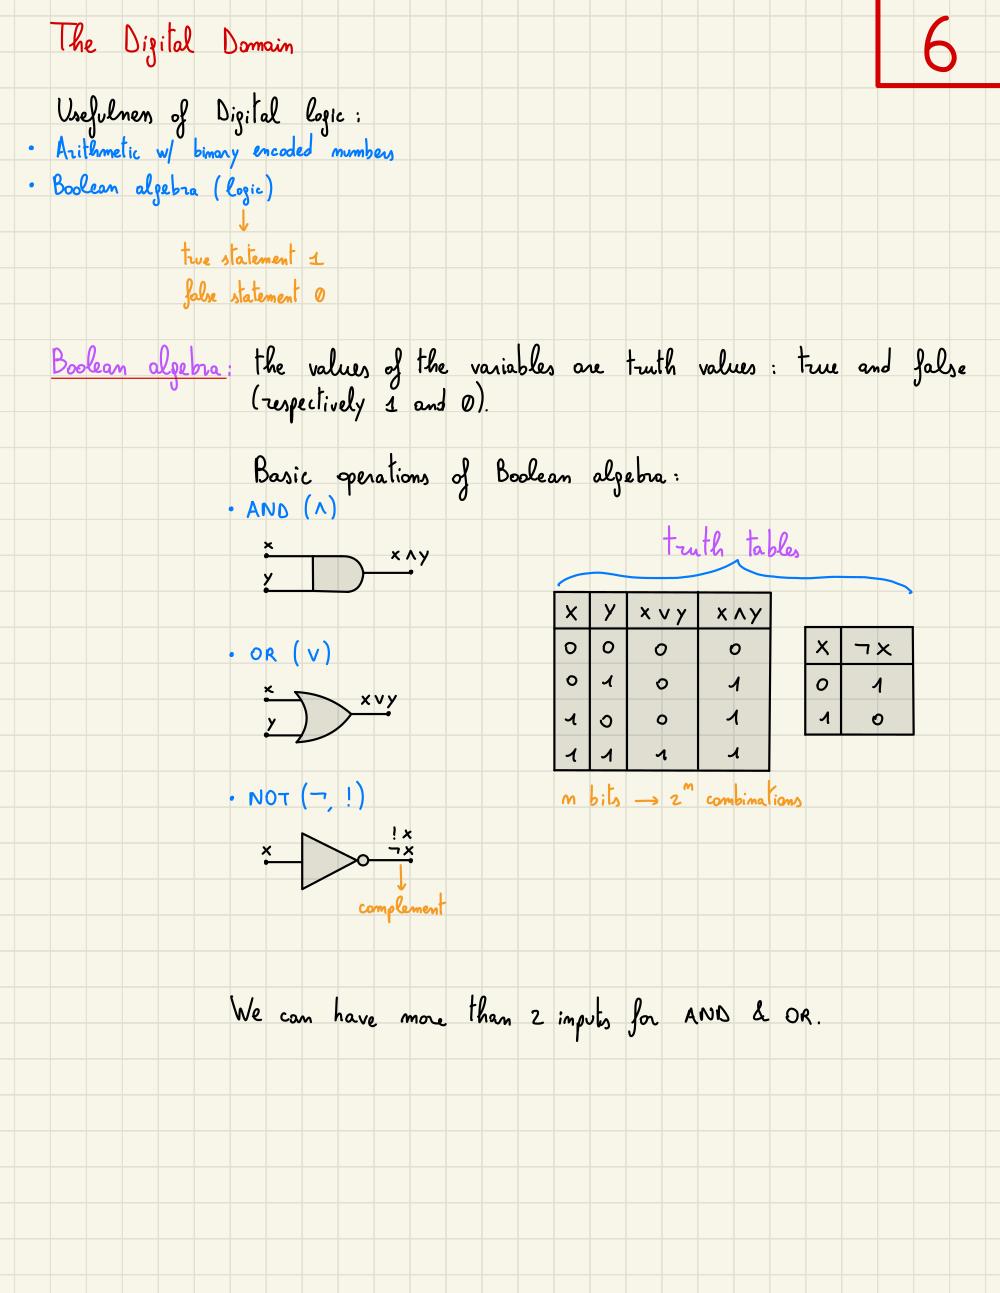 The Digital Domain
6
Usefulness of Digital logic :
• Arithmetic w/ binary encoded numbers
• Boolean algebra (logic)
↓
true statement 1
false statement 0
Boolean algebra: the values of the variables are truth values : true and false
(respectively 1 and 0).
Basic operations of Boolean algebra :
• AND (∧)
x
y
x ∧ y
• OR (∨)
x
y
x ∨ y
• NOT (¬, !)
x
! x
¬ x
↓
complement
truth tables
x y x ∨ y x ∧ y
0 0 0 0
0 1 0 1
1 0 0 1
1 1 1 1
x ¬ x
0 1
1 0
n bits → 2^n combinations
We can have more than 2 inputs for AND & OR.